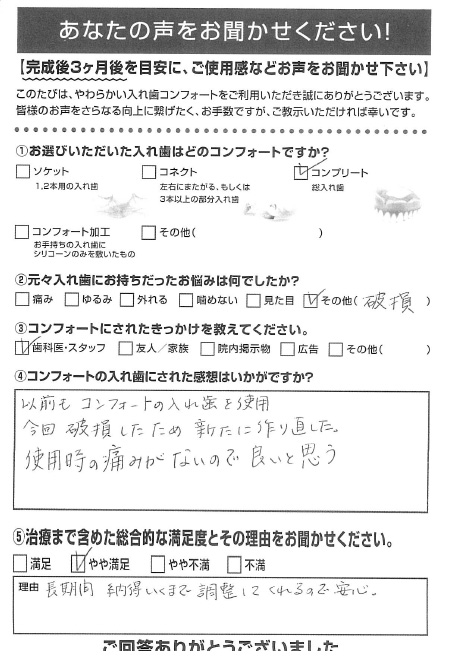 あなたの声をお聞かせください!
【完成後3ヶ月後を目安に、ご使用感などお声をお聞かせ下さい】
このたびは、やわらかい入れ歯コンフォートをご利用いただき誠にありがとうございます。
皆様のお声をさらなる向上に繋げたく、お手数ですが、ご教示いただければ幸いです。
①お選びいただいた入れ歯はどのコンフォートですか?
ソケット コネクト コンプリート
1,2本用の入れ歯 左右にまたがる、もしくは 総入れ歯
3本以上の部分入れ歯
コンフォート加工 その他( )
お手持ちの入れ歯に
シリコーンのみを敷いたもの
②元々入れ歯にお持ちだったお悩みは何でしたか?
痛み ゆるみ 外れる 噛めない 見た目 その他( 破損 )
③コンフォートにされたきっかけを教えてください。
歯科医・スタッフ 友人/家族 院内掲示物 広告 その他( )
④コンフォートの入れ歯にされた感想はいかがですか?
以前も コンフォートの入れ歯を使用
今回 破損したため 新たに作り直した。
使用時の痛みがないので良いと思う
⑤治療まで含めた総合的な満足度とその理由をお聞かせください。
満足 やや満足 やや不満 不満
理由 長期間 納得いくまで 調整してくれるので安心。
ご回答ありがとうございました